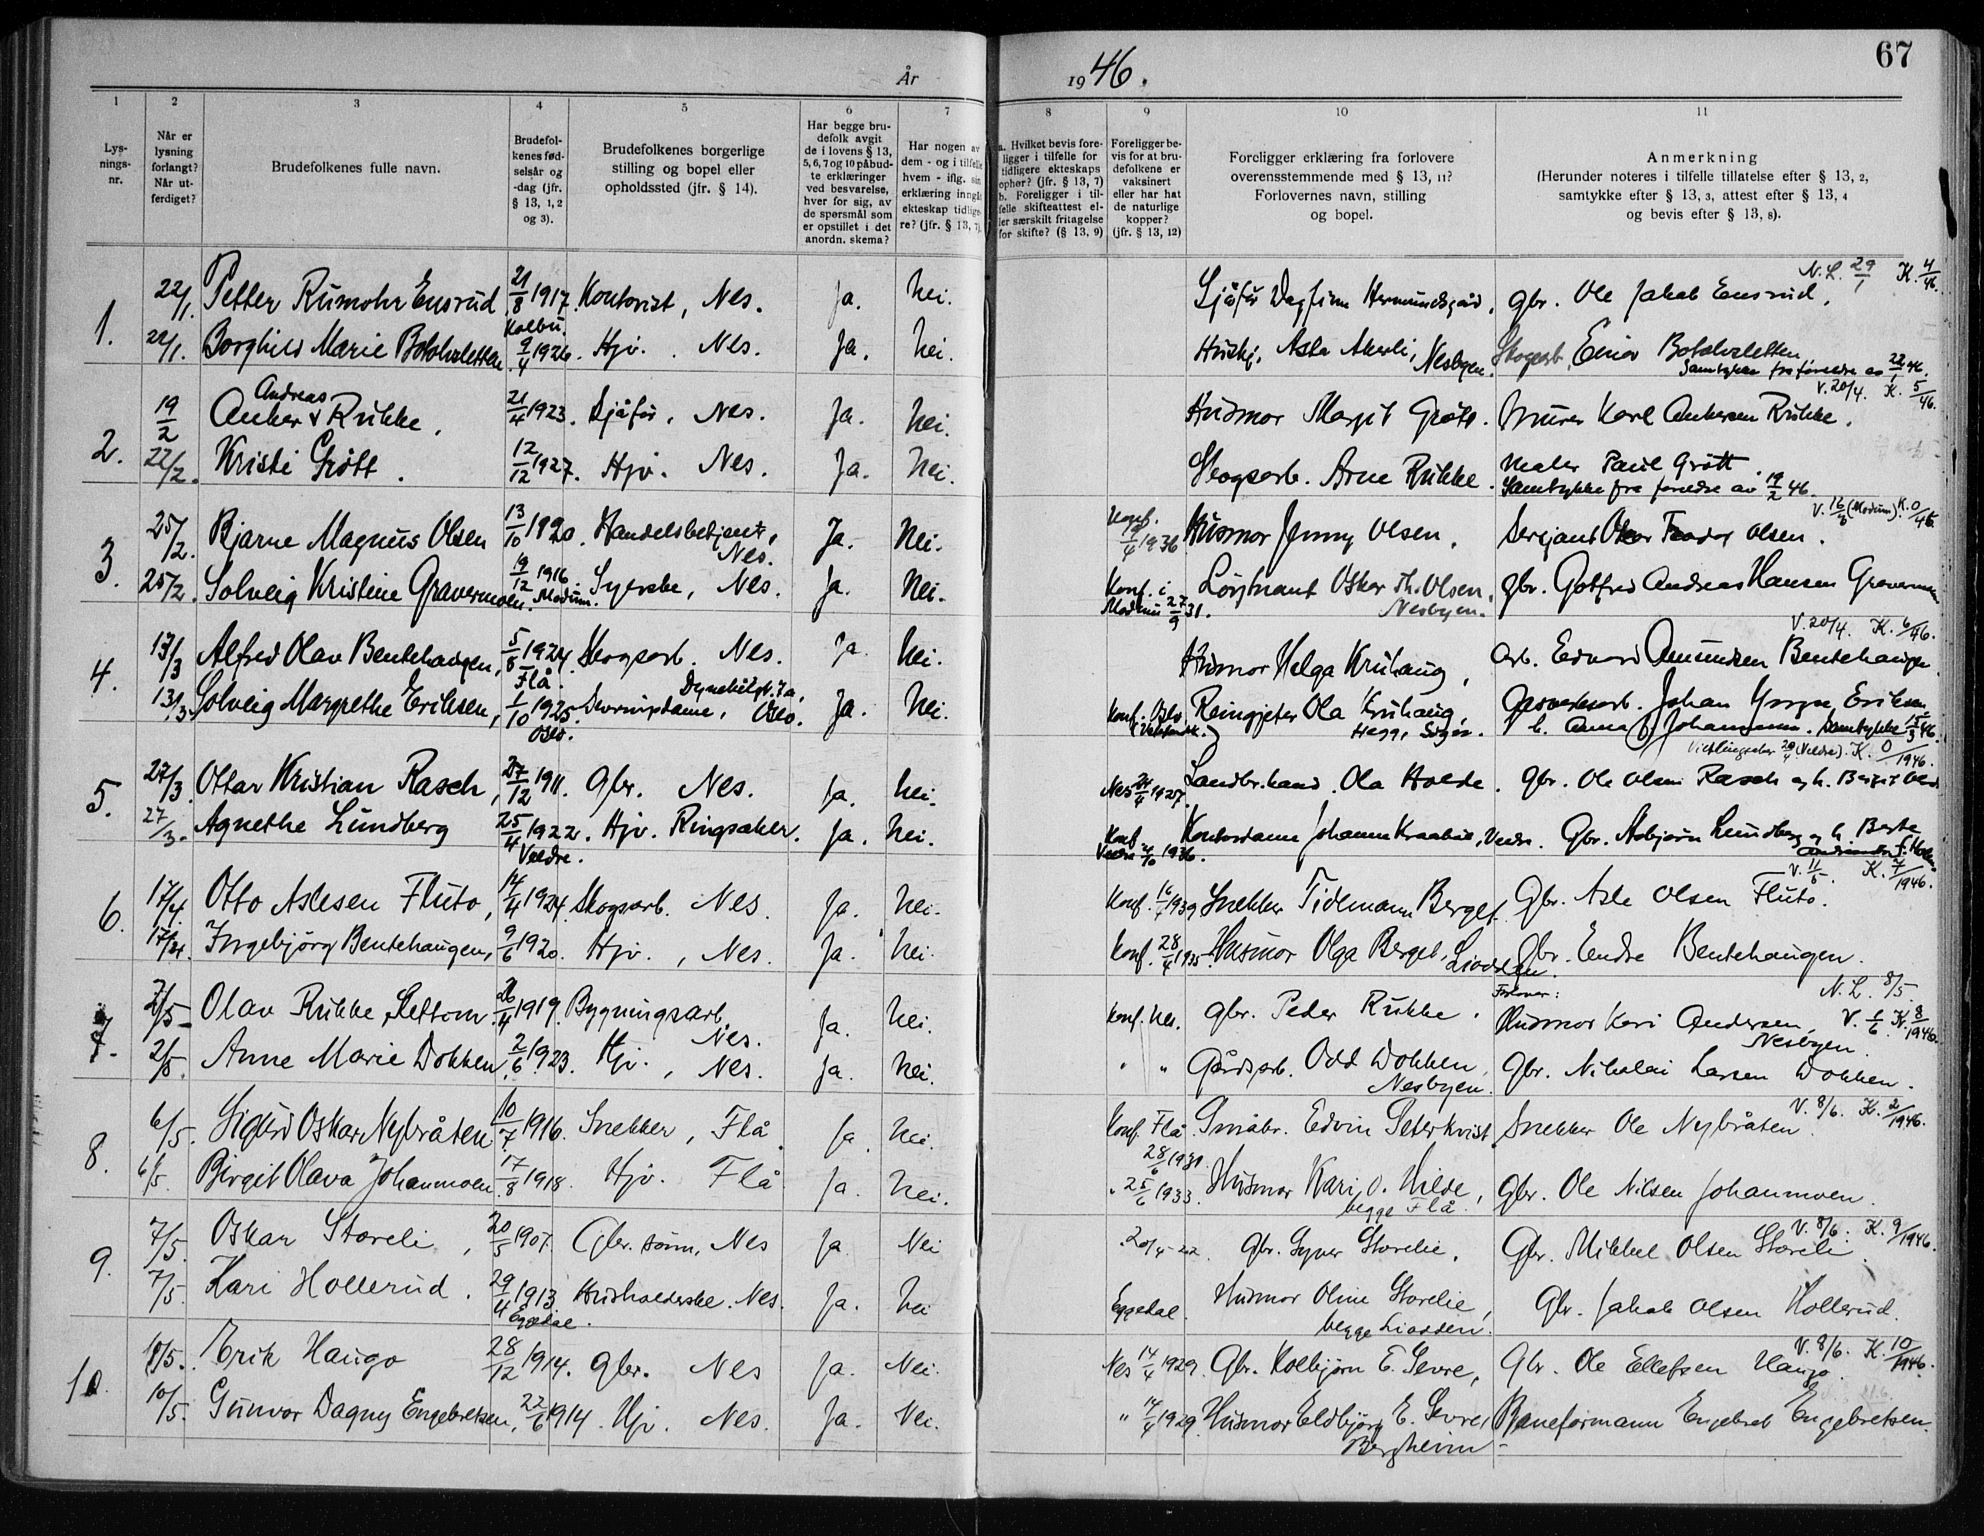 67
År 1946.
1 2 3 4 5 6 7 8 9 10 11
Lys-
nings-
nr.
Når er
lysning
forlangt?
Når ut-
ferdiget?
Brudefolkenes fulle navn.
Brudefol-
kenes fød-
selsår og
-dag (jfr.
§ 13, 1, 2
og 3).
Brudefolkenes borgerlige
stilling og bopel eller
opholdssted (jfr. § 14).
Har begge bru-
defolk avgit
de i lovens § 13,
5, 6, 7 og 10 påbud-
te erklæringer
ved besvarelse,
hver for sig, av
de spørsmål som
er opstillet i det
anordn. skema?
Har nogen av
dem - og i tilfelle
hvem - iflg. sin
erklæring inngått
ekteskap tidlige-
re? (jfr. § 13, 7).
a. Hvilket bevis fore-
ligger i tilfelle for
tidligere ekteskaps
ophør? (jfr. § 13, 7)
b. Foreligger i til-
felle skifteattest el-
ler særskilt fritagelse
for skifte? (§ 13, 9)
Foreligger be-
vis for at bru-
defolkene er
vaksinert
eller har hat
de naturlige
kopper?
(jfr. § 13, 12)
Foreligger erklæring fra forlovere
overensstemmende med § 13, 11?
Forlovernes navn, stilling
og bopel.
Anmerkning
(Herunder noteres i tilfelle tillatelse efter § 13, 2,
samtykke efter § 13, 3, attest efter § 13, 4
og bevis efter § 13, 8).
N.L. 29/1 K. 4/46.
1. 22/1. Petter Rumohr Ensrud 21/8 1917. Kontorist, Nes. Ja. Nei. Sjåfør Dagfinn Hermundsgård, gbr. Ole Jakob Ensrud.
Kolbu.
22/1. Borghild Marie Botolvsletten 9/4 1926. Hjv. Nes. Ja. Nei. Huskj. Asta Akerli, Nesbyen. Skogsarb. Einar Botolvsletten.
Samtykke fra foreldre av 22/1 46.
V. 20/4. K. 5/46.
Andreas
2. 19/2 Anker Rukke. 21/4 1923. Sjåfør, Nes. Ja. Nei. Husmor Margit Grøtt. Murer Karl Ankersen Rukke.
22/2. Kristi Grøtt. 12/12 1927. Hjv. Nes. Ja. Nei. Skogsarb. Arne Rukke. Maler Paul Grøtt.
Samtykke fra foreldre av 19/2 46.
V. 16/3 (Modum). K. 0/46.
3. 25/2. Bjarne Magnus Olsen 13/10 1920. Handelsbetjent, Nes. Ja. Nei. Konf. 19/4 1936 Husmor Jenny Olsen. Sersjant Olsen.
25/2. Solveig Kristine Gravermoen. 19/12 1916 Modum. Syerske, Nes. Ja. Nei. Konf. i Modum 27/9 31. Løytnant Oskar Th. Olsen. Nesbyen. gbr. Gotfred Andreas Hansen
V. 20/4. K. 6/46.
4. 13/3 Alfred Olav Bentehaugen, 5/8 1924. Flå. Skogsarb. Nes. Ja. Nei. Husmor Helga Kruhaug, arb. Edvard Amundsen Bentehaugen
13/3. Solveig Margrethe Eriksen, 1/10 1925. Oslo. Oslo. Ja. Nei. Konf. Oslo Ola Kruhaug, Johan Eriksen
Samtykke 15/3 46.
(Veldre). K. 0/1946.
5. 27/3. Ottar Kristian Rasch, 27/12 1911. Gbr. Nes. Ja. Nei. Nes 24/4 1927. Landbr.kand. Ola Holde. Gbr. Ole Olsen Rasch og h. Bergit
27/3. Agnethe Lundberg 25/4 1922. Veldre. Hjv. Ringsaker. Ja. Nei. Konf. Veldre 1936. Kontordame Johanne Gbr. Asbjørn Lundberg og h. Berte
V. 11/5. K. 7/1946.
6. 17/4. Otto Aslesen Fluto, 14/4 1924. Skogsarb. Nes. Ja. Nei. Konf. 1939 Snekker Tidemann Berget. Gbr. Asle Olsen Fluto.
17/4. Ingebjørg Bentehaugen, 9/6 1920. Hjv., Nes. Ja. Nei. Konf. 28/4 1935. Husmor Olga Berget, Liodden. Gbr. Endre Bentehaugen.
N.L. 8/5.
Forlover:
7. 2/5 Olav Rukke Settom. 26/4 1919. Bygningsarb. Nes. Ja. Nei. Konf. Nes. Gbr. Peder Rukke. Husmor Kari Andersen, Nesbyen. V. 1/6. K. 8/1946.
2/5. Anne Marie Dokken, 2/6 1923. Hjv., Nes. Ja. Nei. " " Gårdsarb. Odd Dokken, Nesbyen. Gbr. Nikolai Larsen Dokken.
V. 8/6. K. 2/1946.
8. 6/5. Sigurd Oskar Nybråten 10/7 1916. Snekker, Flå. Ja. Nei. Konf. Flå 28/6 1931. Småbr. Edvin Peterkvist, Snekker Ole Nybråten.
6/5. Birgit Olava Johanmoen. 17/8 1918. Hjv. Flå Ja. Nei. " 25/6 1933. Husmor Kari O. Hilde, begge Flå. Gbr. Ole Nilsen Johanmoen.
V. 8/6. K. 9/1946.
9. 7/5. Oskar Storeli, 20/5 1907. Gbr. sønn, Nes Ja. Nei 20/4-22. Gbr. Syver Storelie, Gbr. Mikkel Olsen Storeli.
7/5. Kari Hollerud. 29/4 1913. Eggedal. Husholderske. Nes. Ja. Nei Eggedal. Husmor Oline Storelie, begge Liodden. Gbr. Jakob Olsen Hollerud.
V. 8/6. K. 10/1946.
10. 10/5. Erik Haugo 28/12 1914. Gbr. Nes Ja. Nei. Nes 14/4 1929. Gbr. Kolbjørn E. Sevre, Gbr. Ole Ellefsen Haugo.
10/5. Gunvor Dagny Engebretsen, 22/6 1914. Hjv. Nes. Ja. Nei. " 14/4 1929. Husmor Eldbjørg E. Sevre, Bergheim. Baneformann Engebret Engebretsen.